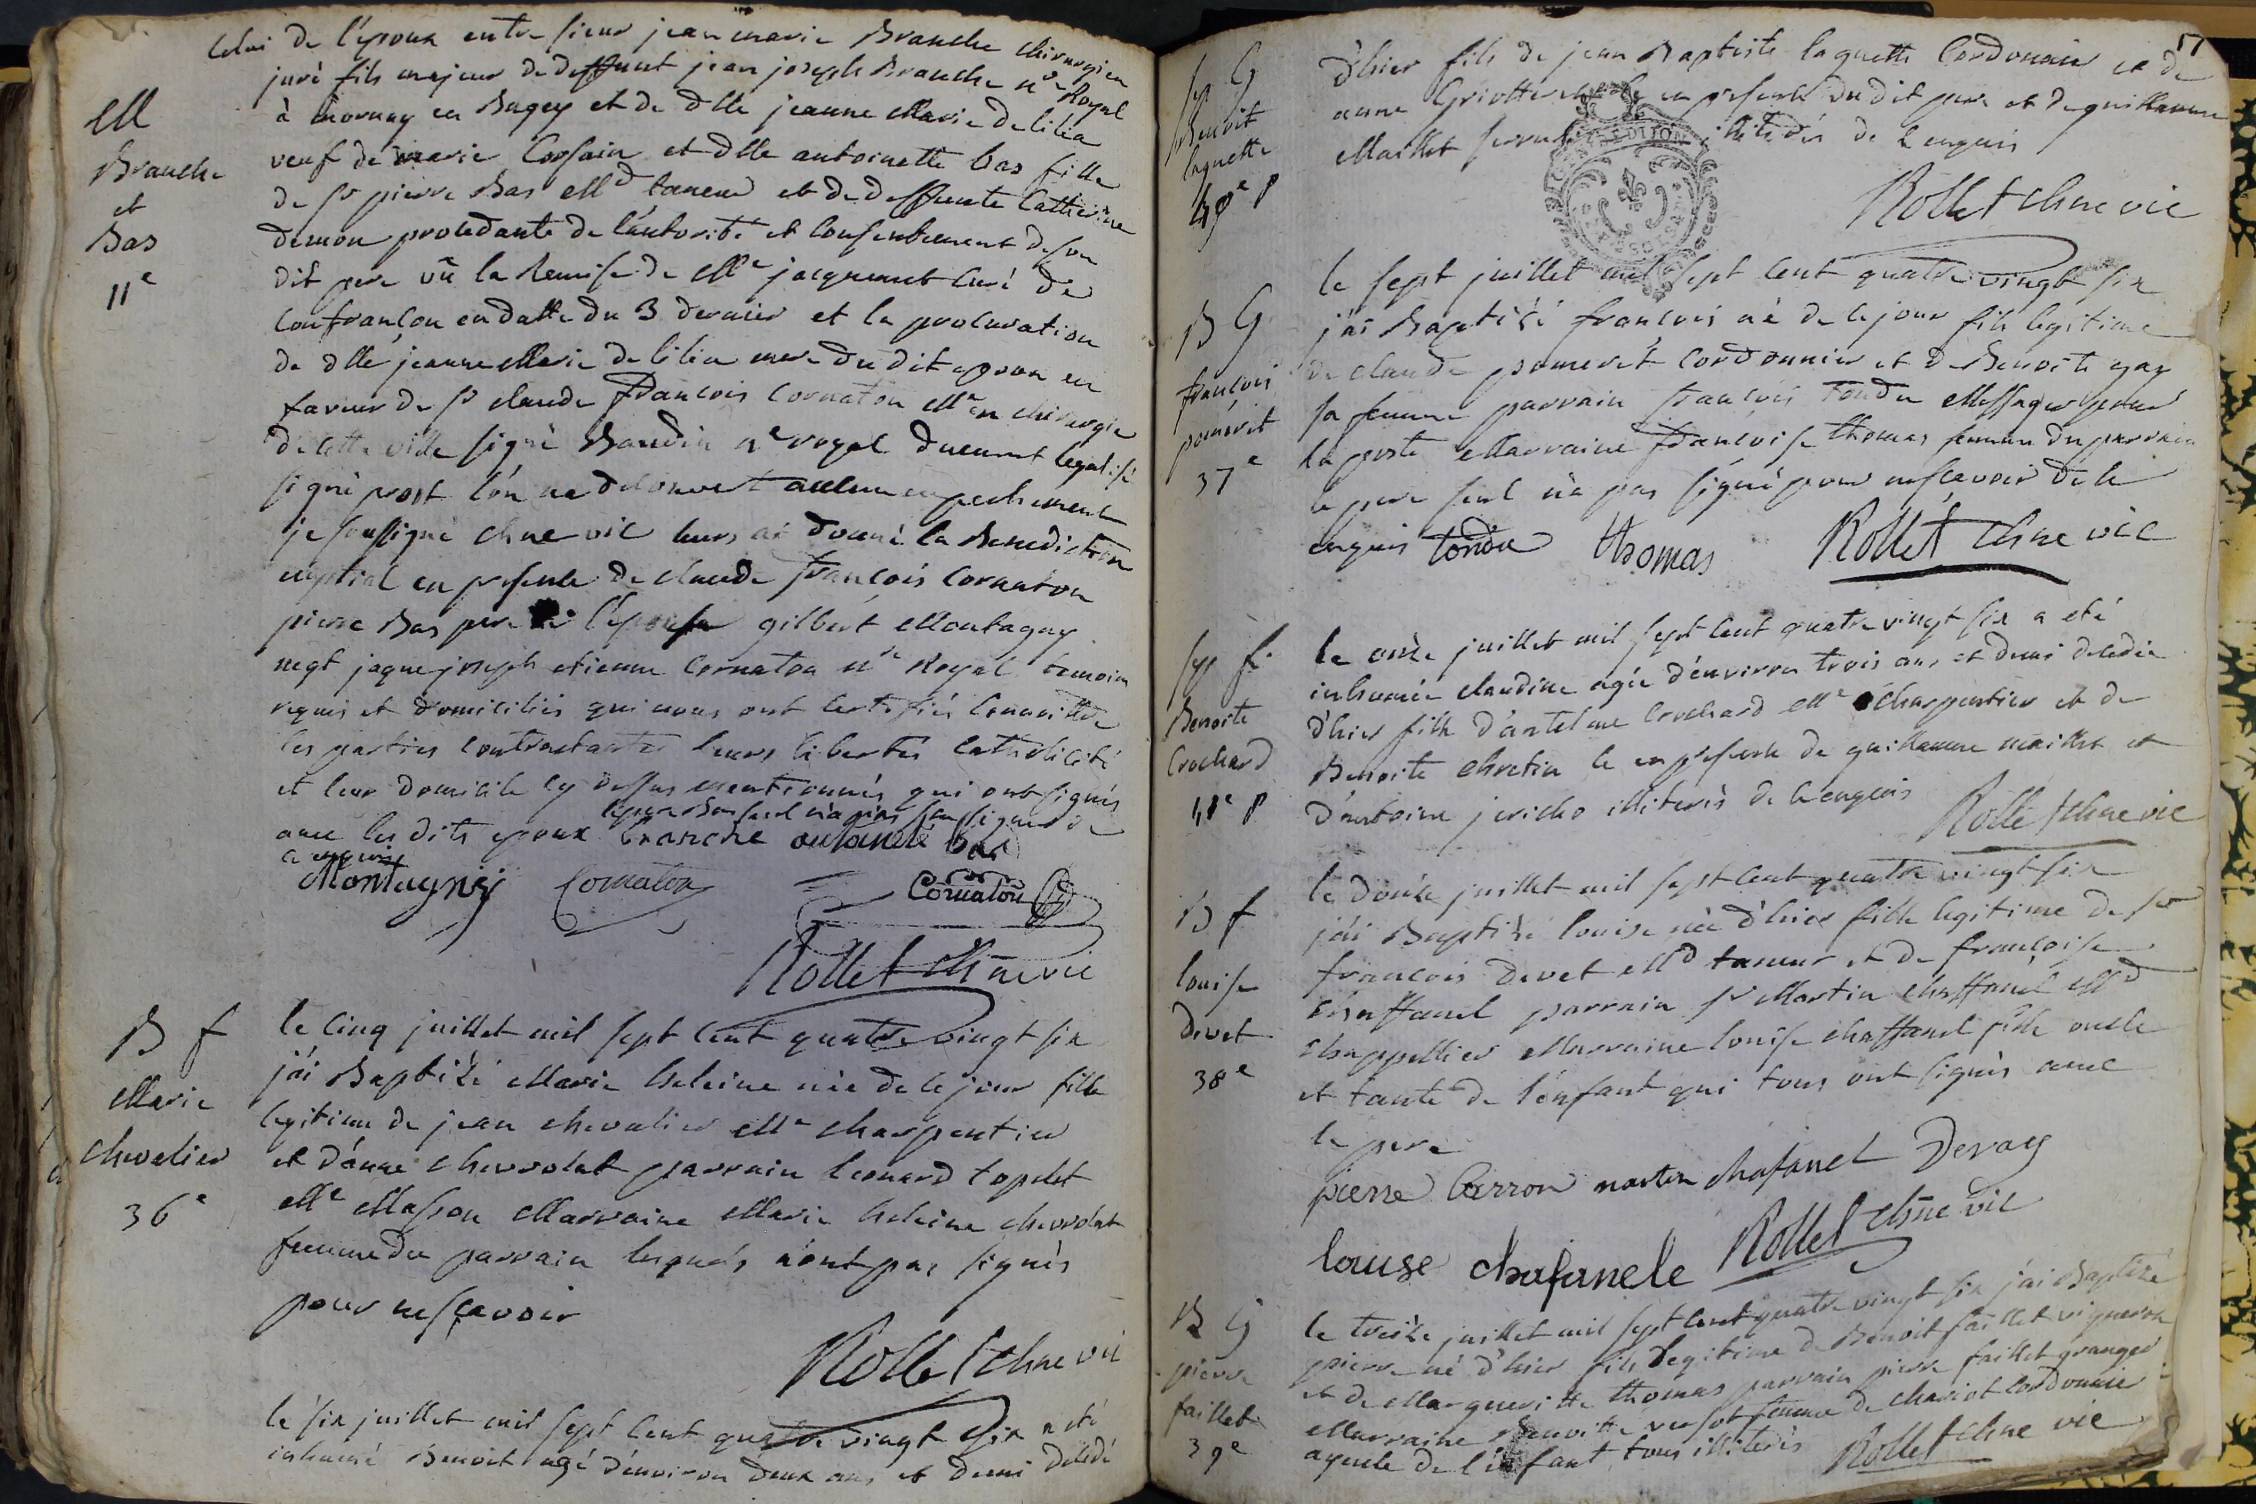 celui de l'epoux entre sieur jean marie Branche chirurgien
juré fils majeur de deffunt jean joseph Branche nre Royal
à mornay en Bugey et de dlle jeanne Marie de lilia
veuf de marie Corsain et dlle antoinette bas fille
de sr pierre Bas Md taneur et de deffunte Catherine
demon procedante de l'autorité et consentement de son
dit pere vû la Remise de Mre jacquemet curé de
confrançon en datte du 3 dernier et la procuration
de dlle jeanne Marie de lilia mere du dit epoux en
faveur de sr claude françois Cornaton Me en chirurgie
de cette ville signé Baudin nre royal duement legalisé
signé prost l'on n'a decouvert aucun empechement
je soussigné chne vic leurs ai donné la Benediction
nuptial en presence de claude françois Cornaton
pierre Bas pere de l'epouse gilbert Montagny
negt jaque joseph etienne Cornaton nre Royal temoins
requis et domiciliés qui nous ont certifiés connoittre
les parties contractantes leurs libertés catholicité
et leur domicile cy dessus mentionnés qui ont signés
avec les dits epoux branche antoinete bas
a enquis
Montagny Cornaton Cornaton
Rollet chne vic
M
Branche
et
Bas
11e
B f
Marie
chevalier
36e
le cinq juillet mil sept cent quatre vingt six
j'ai Baptizé Marie heleine née de ce jour fille
legitime de jean chevalier Me charpentier
et d'anne chevrolat parrain leonard topelet
Me Masson Marraine Marie heleine chevrolat
femme du parrain lesquels n'ont pas signés
pour ne sçavoir
Rollet chne vic
le six juillet mil sept cent quatre vingt six a eté
inhumé Benoit agé d'environ deux ans et demi decedé
17
sep G
Benoit
laquette
40e p
d'hier fils de jean Baptiste laquette Cordonnier et de
anne Griotte en presence du dit pere et de guillaume
Maillet illiterés de l'enquis
Rollet chne vic
B G
françois
pomeret
37e
le sept juillet mil sept cent quatre vingt six
j'ai Baptizé françois né de ce jour fils legitime
de claude pomeret cordonnier et de Benoite gay
sa femme parrain françois Tondu Messager pour
la poste Marraine françoise thomas femme du parrain
le pere seul n'a pas signé pour ne sçavoir de ce
enquis tondu thomas Rollet chne vic
sep f
Benoite
Crochard
41e p
le onze juillet mil sept cent quatre vingt six a eté
inhumée claudine agée d'environ trois ans et demi decedée
d'hier fille d'antelme Crochard Me charpentier et de
Benoite chretin le en presence de guillaume maillet et
d'antoine jericho illiterés de l'enquis
Rollet chne vic
B f
louise
devet
38e
le douze juillet mil sept cent quatre vingt six
j'ai Baptizé louise née d'hier fille legitime de sr
françois devet Md taneur et de françoise
chaffanel parrain sr Martin chaffanel Md
chappellier Marraine louise chaffanel fille oncle
et tante de l'enfant qui tous ont signés avec
le pere
pierre Carron marten chafanel Devay
louise chafanele Rollet chne vic
B G
pierre
faillet
39e
le treize juillet mil sept cent quatre vingt six j'ai Baptizé
pierre né d'hier fils legitime de Benoit faillet vigneron
et de Margueritte thomas parrain pierre faillet granger
Marraine Benoitte femme de chariot cordonnier
ayeule de l'enfant tous illiterés Rollet chne vic